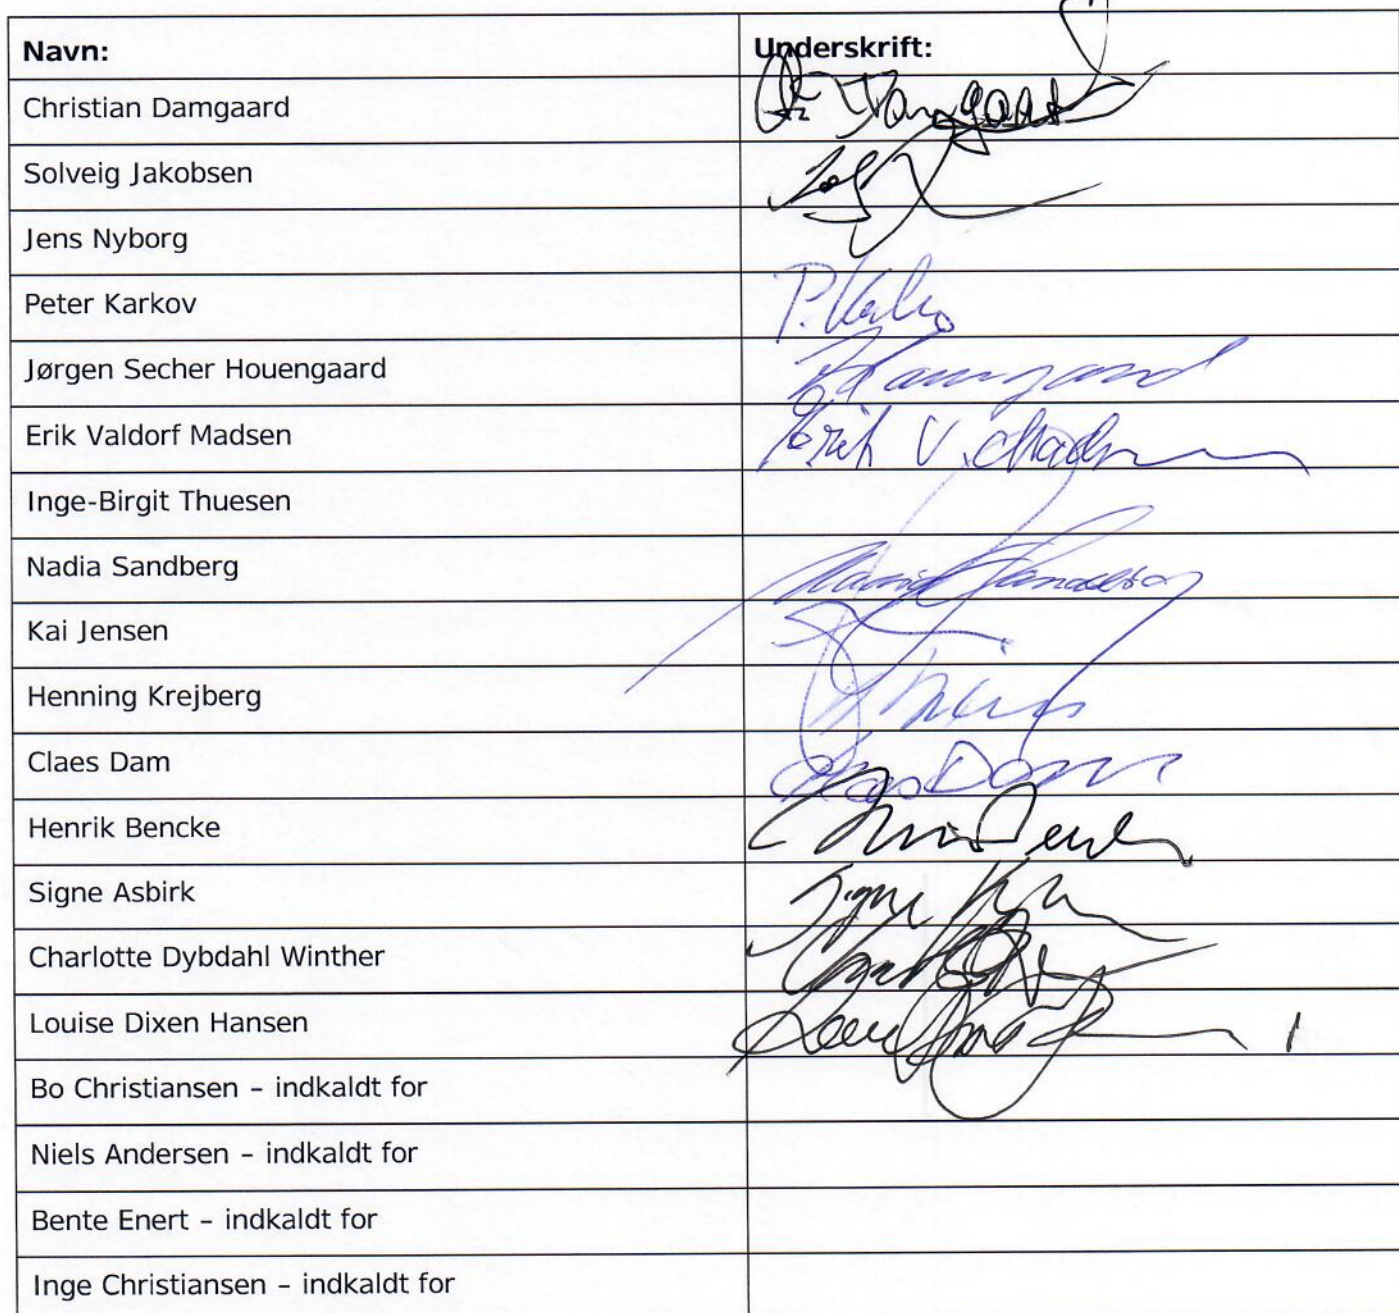 Navn: Underskrift:
Christian Damgaard Damgaard
Solveig Jakobsen
Jens Nyborg
Peter Karkov P.
Jørgen Secher Houengaard
Erik Valdorf Madsen Erik V. Madsen
Inge-Birgit Thuesen
Nadia Sandberg
Kai Jensen
Henning Krejberg
Claes Dam Claes Dam
Henrik Bencke
Signe Asbirk Signe
Charlotte Dybdahl Winther
Louise Dixen Hansen
Bo Christiansen – indkaldt for
Niels Andersen – indkaldt for
Bente Enert – indkaldt for
Inge Christiansen – indkaldt for